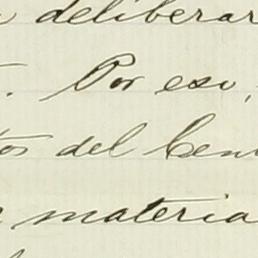 deliberar
. Por eso,
tos del Cen
materia